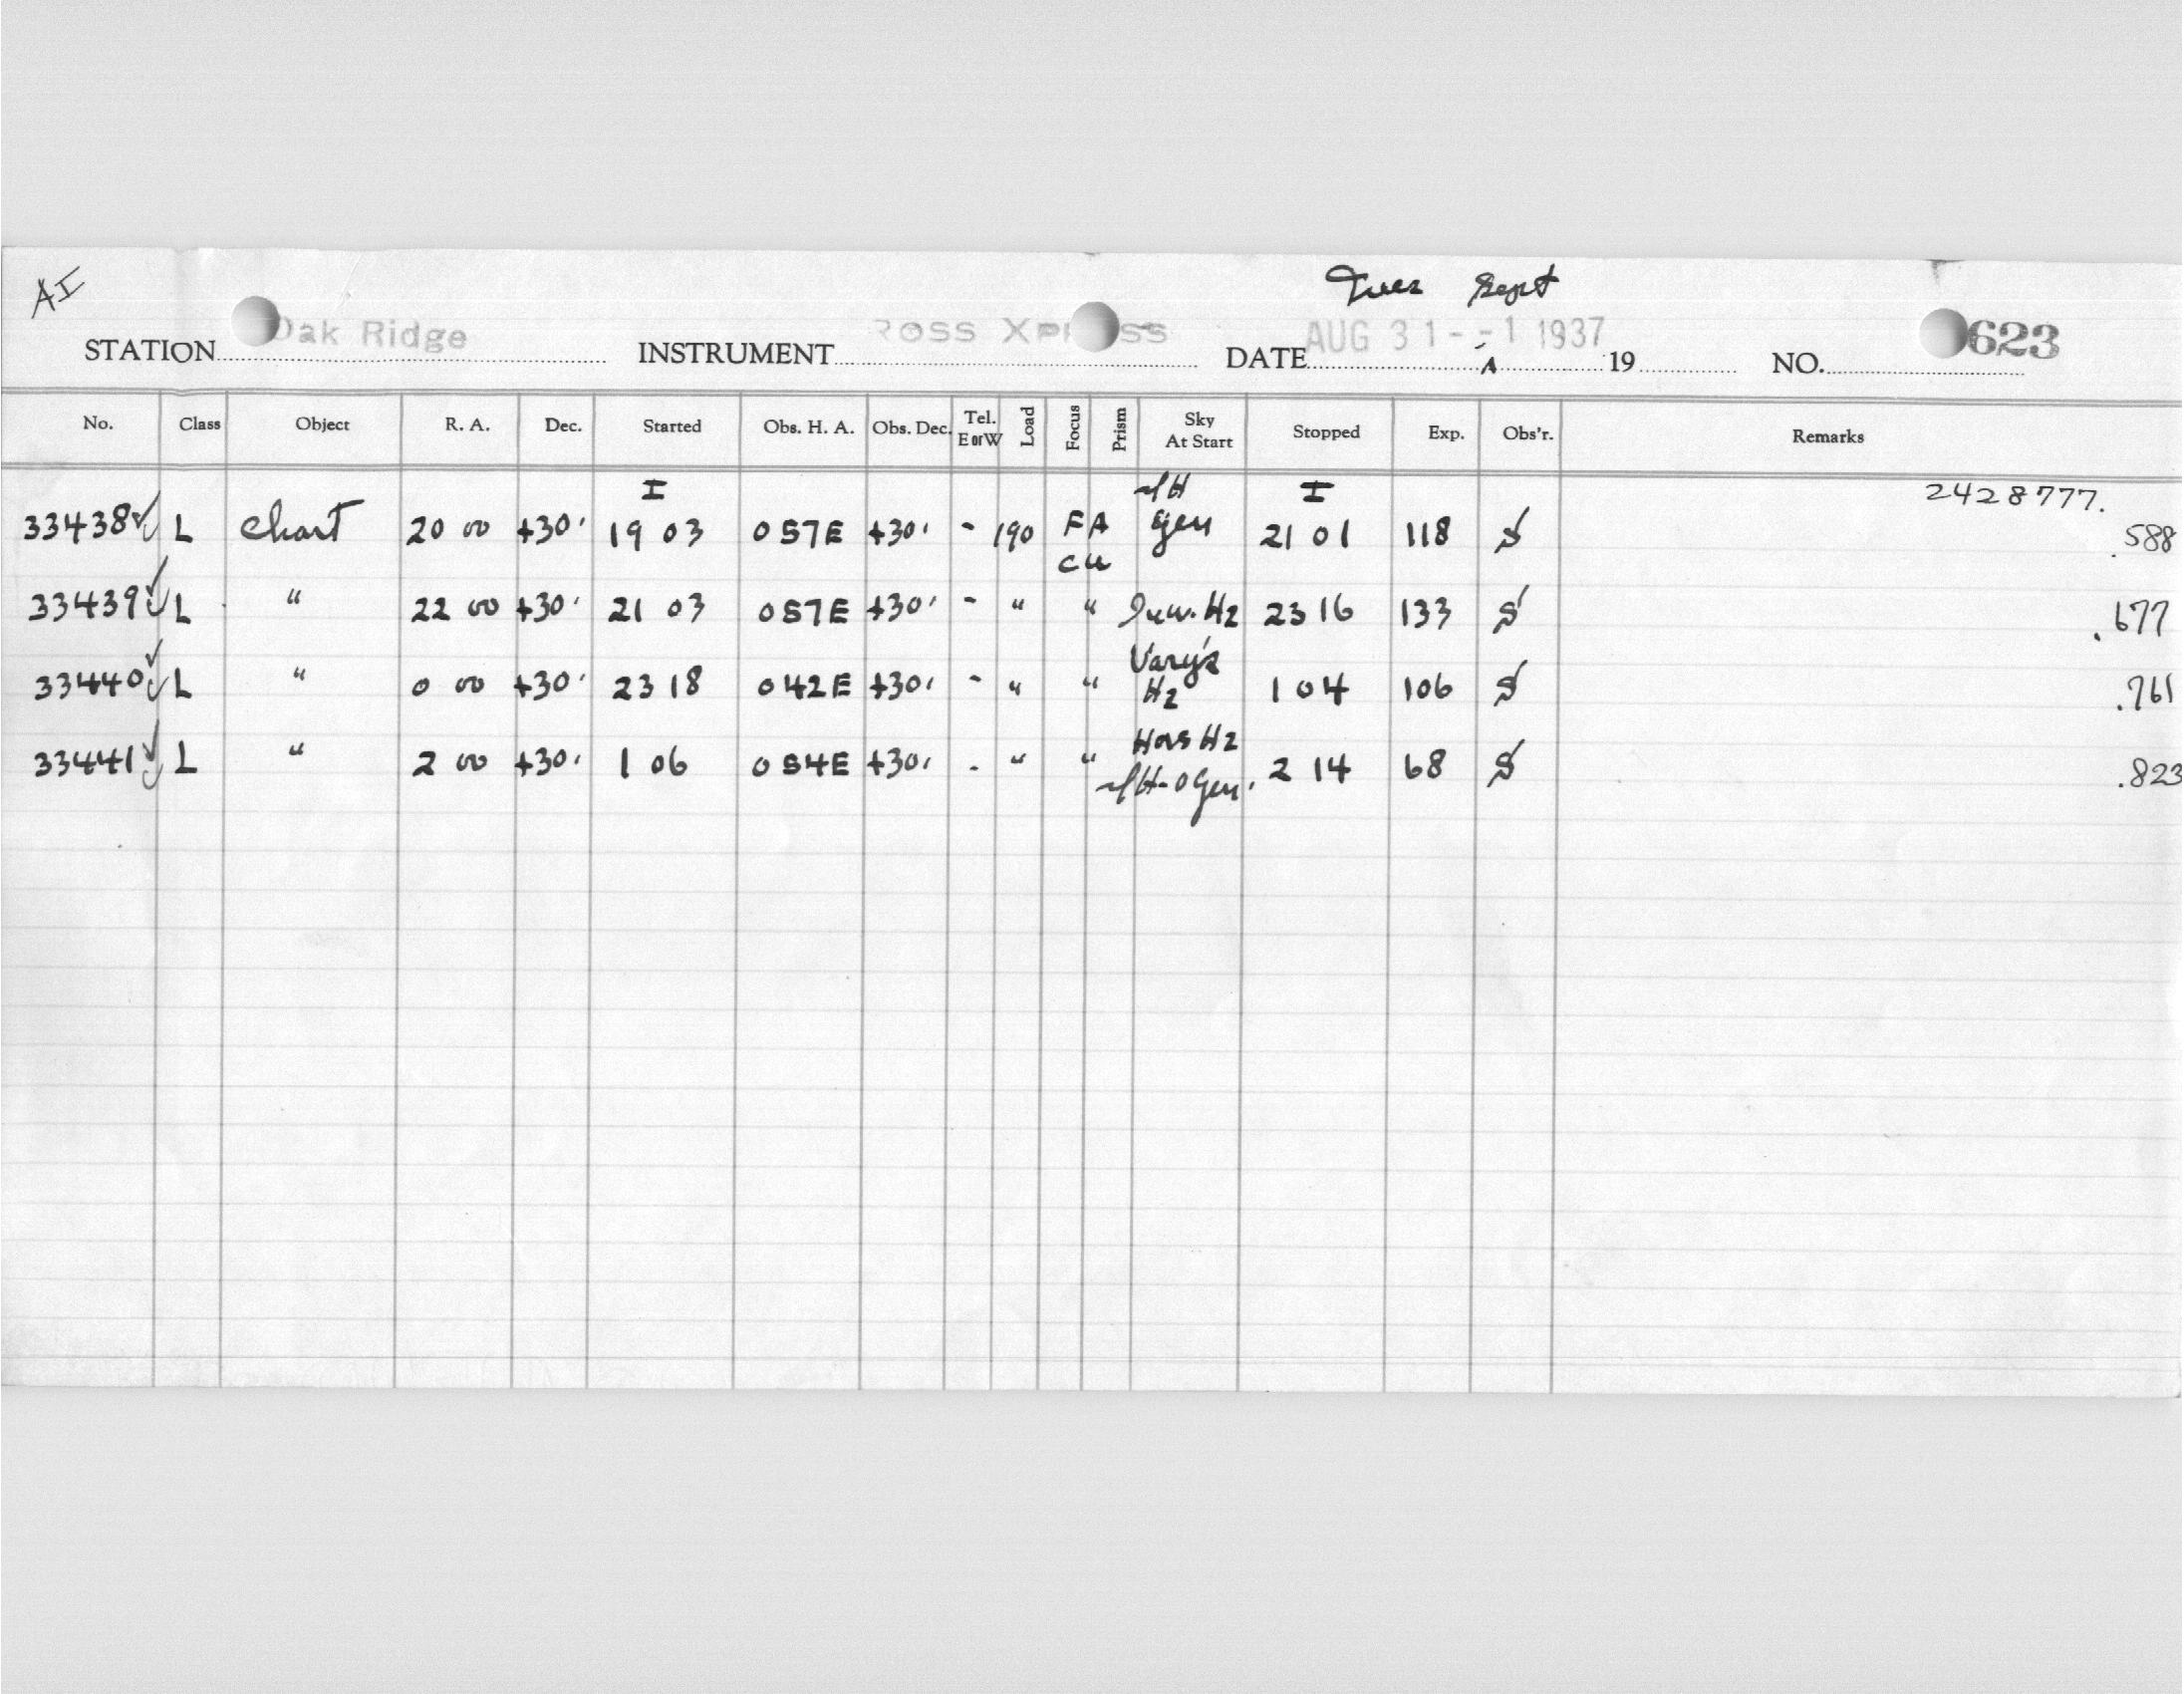 AI
Tues Sept
STATION Oak Ridge INSTRUMENT ROSS XPRESS DATE AUG 31 - - 1 1937 19 NO. 623
No. Class Object R. A. Dec. Started Obs. H. A. Obs. Dec. Tel. E or W Load Focus Prism Sky At Start Stopped Exp. Obs'r. Remarks
I I 2428777.
33438 L Chart 20 00 +30' 19 03 0 57E +30' - 190 FA Cu gen 21 01 118 S .588
33439 L " 22 00 +30' 21 03 0 57E +30' - " " Hz 23 16 133 S .677
33440 L " 0 00 +30' 23 18 0 42E +30' - " " Vary'g Hz 1 04 106 S .761
33441 L " 2 00 +30' 1 06 0 54E +30' - " " Hor Hz Gen. 2 14 68 S .823